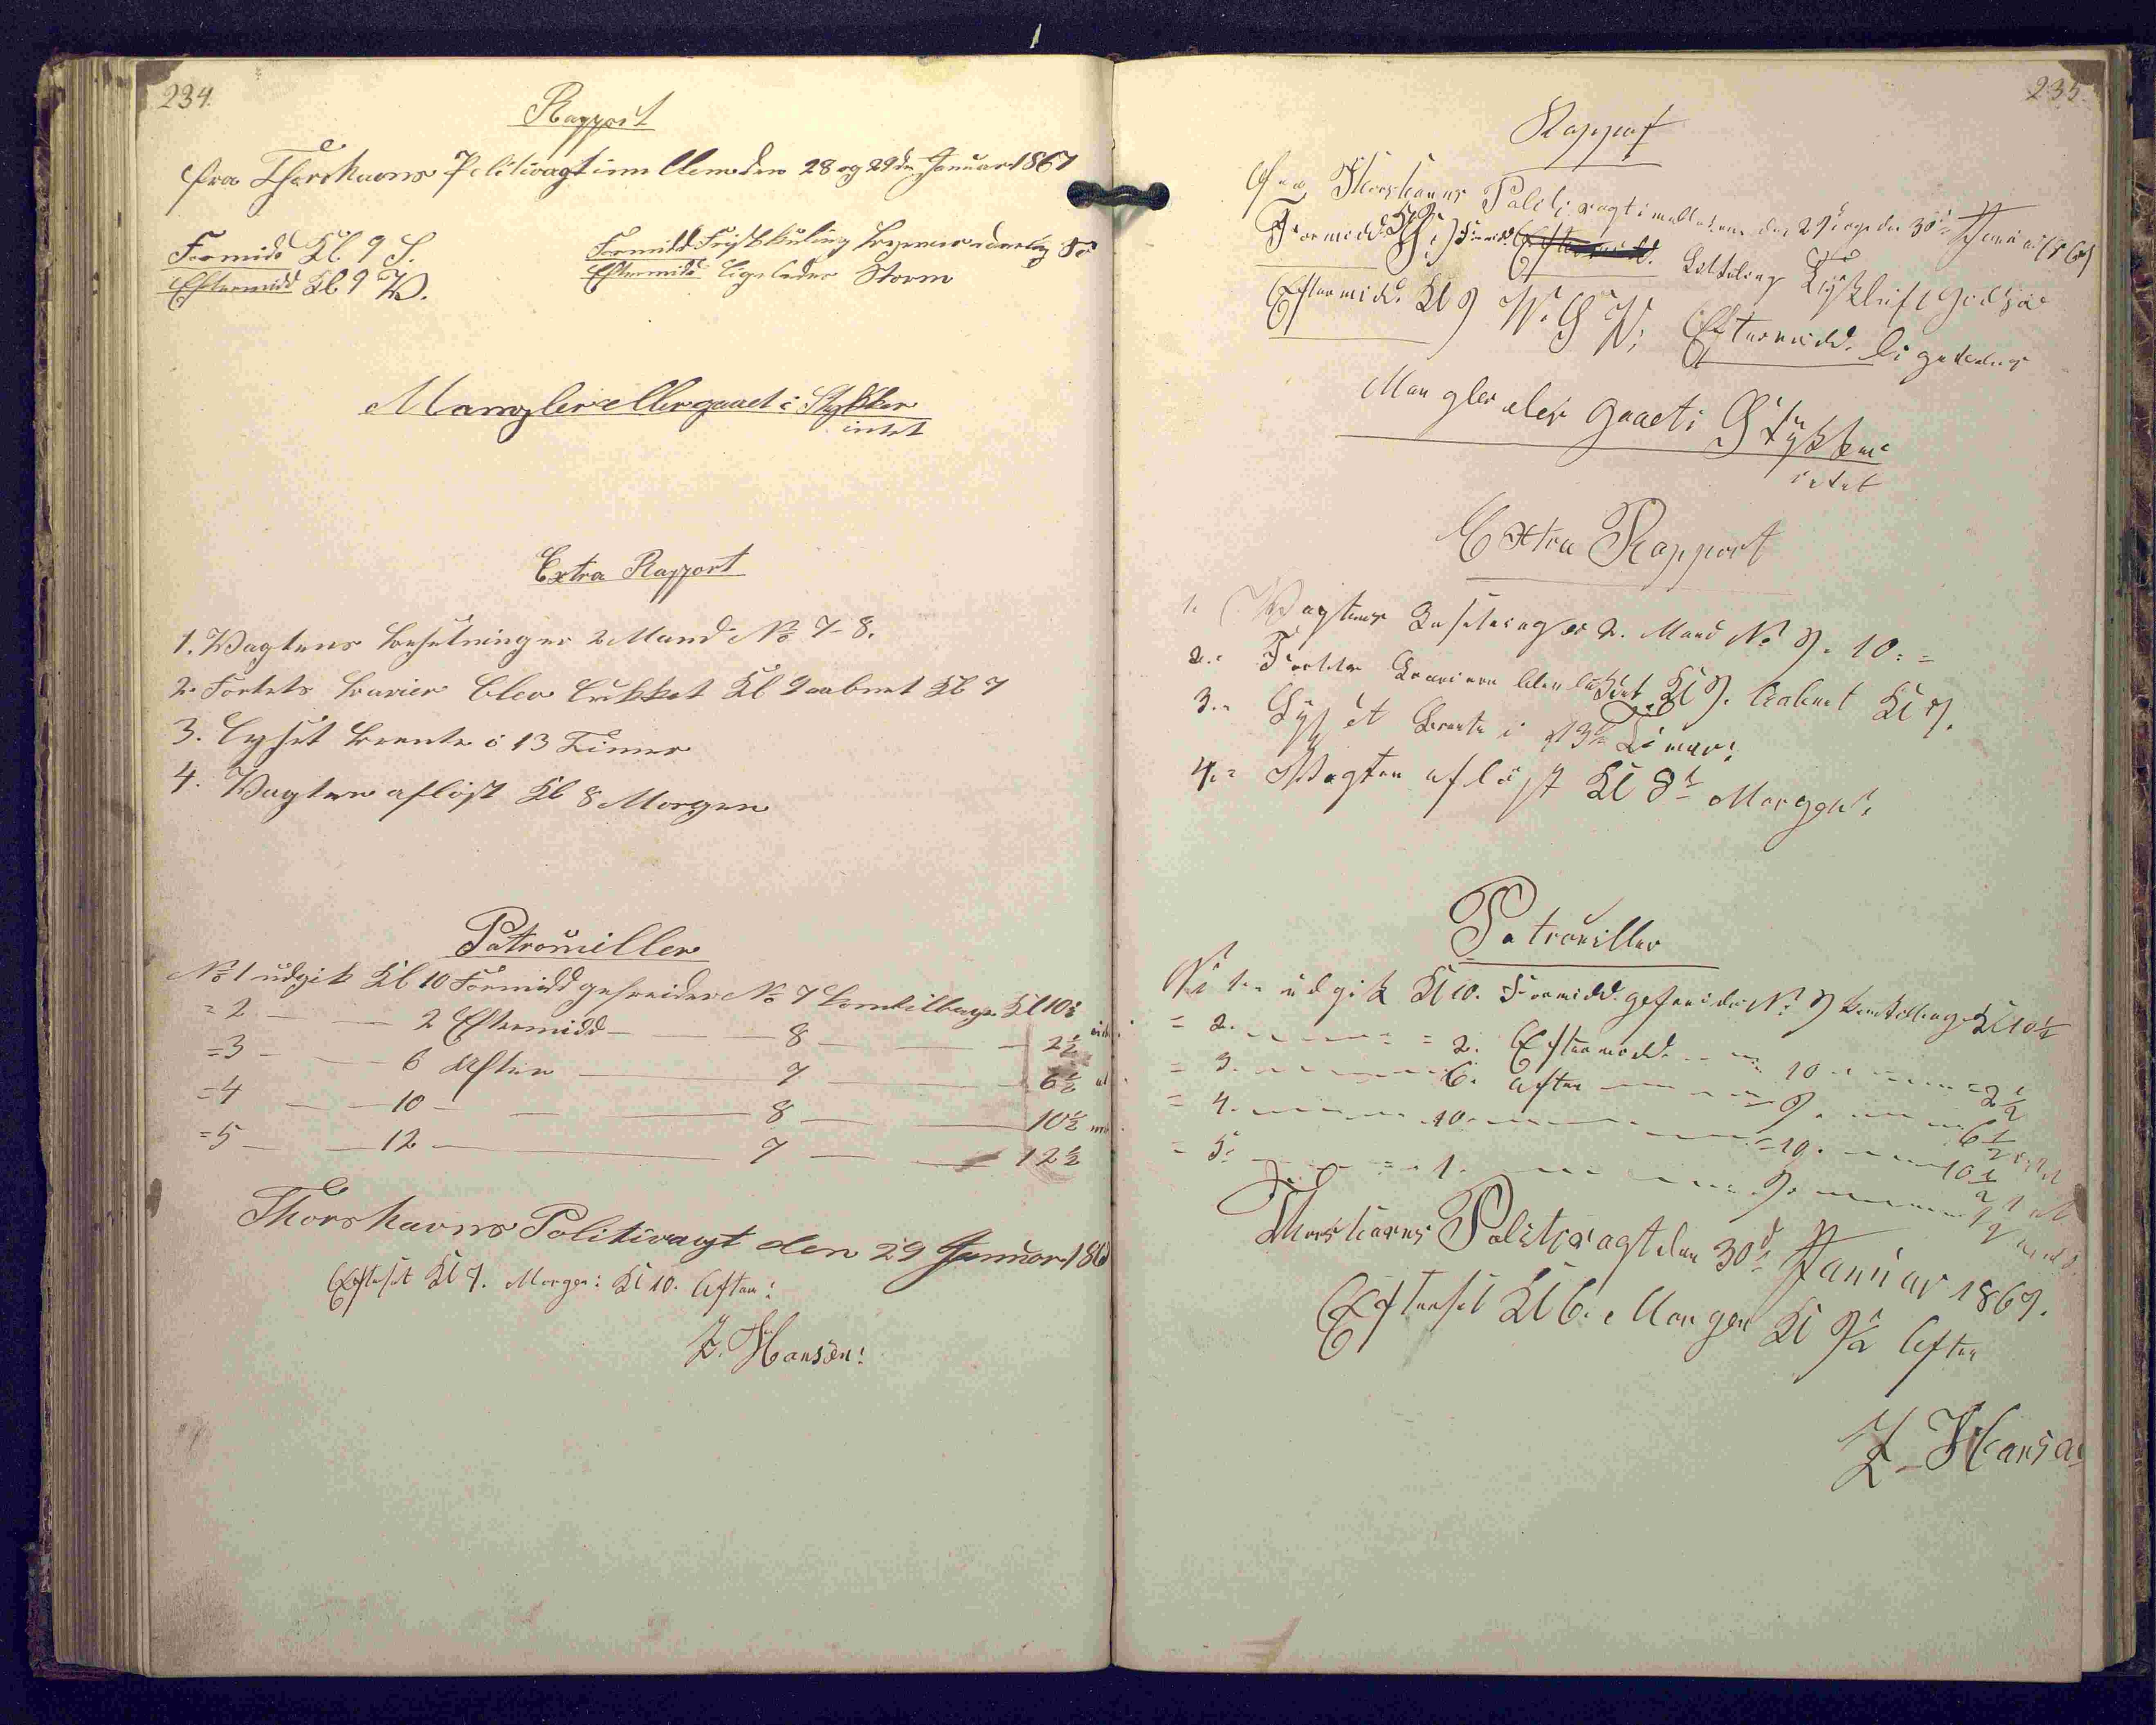 234.
Rapport
fra Thorshavns Politivagt imellem den 28 og 29de Januar 1867
Formidd Kl 9 S.
Eftermidd Kl 9 W.
Formidd Frisk Kuling
Eftermidd Ligeledes Storm
Mangler eller gaaet i Stykker
intet
Extra Rapport
1. Vagtens besetning er 2 Mand No 7-8.
2. Fortets blev lukket Kl 9 aabnet Kl 7
3. Lyset brente i 13 Timer
4. Vagten afløst Kl 8 Morgen
Patrouiller
No 1 udgik Kl 10 Formidd No 7 kom tilbage Kl 10½
= 2 — — 2 Eftermidd — — 8 — — 2½
= 3 — — 6 Aften — 7 — 6½
= 4 — — 10 — — — 8 — — 10½
= 5 — — 12 — — 7 — — 12½
Thorshavns Politivagt den 29 Januar 186
Efterset Kl 7. Morgen: Kl 10. Aften:
Z. Hansen:
235.
Rapport
fra Thorshavns Politivagt imellem den 29 og den 30d Januar 1867
Formidd. Kl 9 Formidd.
Eftermidd. Kl 9 W. S W; Eftermidd. Ligeledes
Mangler eler gaaet i Stykker
intet
Extra Rapport
1. Vagtens Besetning er 2. Mand No 9. 10. =
2. = blev lukket Kl 9. aabnet Kl 7.
3. = Lyset brente i 13 Timer:
4. = Vagten afløst Kl 8 Morggen.
Patrouiller
No 1 = udgik Kl 10. Formidd. No 9 kom tilbage Kl 10½
= 2. — — = 2. Eftermidd. — — 10 — — = 2½
= 3. — — 6. Aften — — 9. — — 6½ intet
= 4. — — 10. — — = 10. — — 10½
= 5. — — = 1. — — 9. — —
Thorshavns Politivagt den 30d Januar 1867.
Efterset Kl 6. Morgen Kl 9½ Aften
Z. Hansen